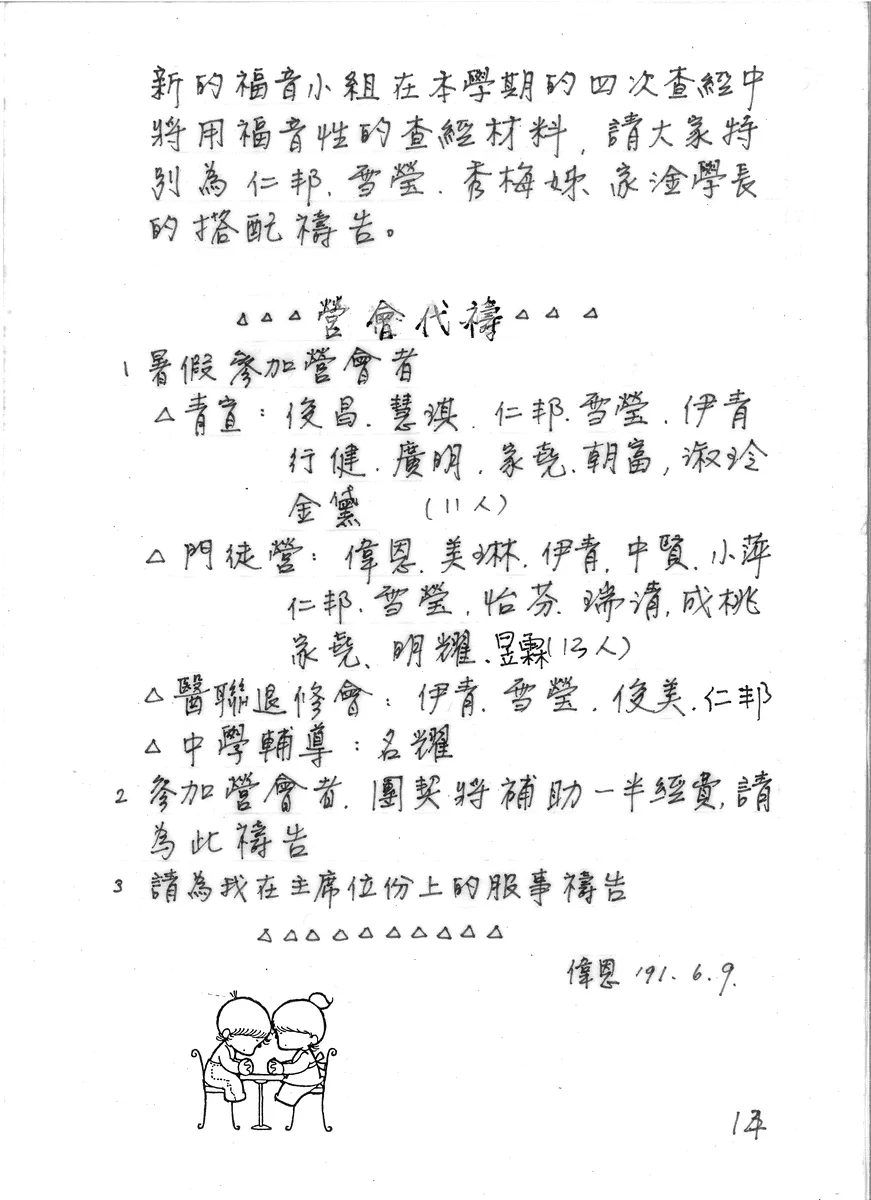 新的福音小組在本學期的四次查經中
將用福音性的查經材料，請大家特
別為仁邦、雪瑩、秀梅姊、家淦學長
的搭配禱告。
△△△營會代禱△△△
1 暑假參加營會者
△青宣：俊昌、慧琪、仁邦、雪瑩、伊青
行健、廣明、家堯、朝富，淑玲
金黛 (11人)
△門徒營：偉恩、美琳、伊青、中賢、小萍
仁邦、雪瑩、怡芬、瑞清、成桃
家堯、明耀、昱霖(13人)
△醫聯退修會：伊青、雪瑩、俊美、仁邦
△中學輔導：名耀
2 參加營會者、團契將補助一半經費，請
為此禱告
3 請為我在主席位份上的服事禱告
△△△△△△△△△△
偉恩 '91. 6. 9.